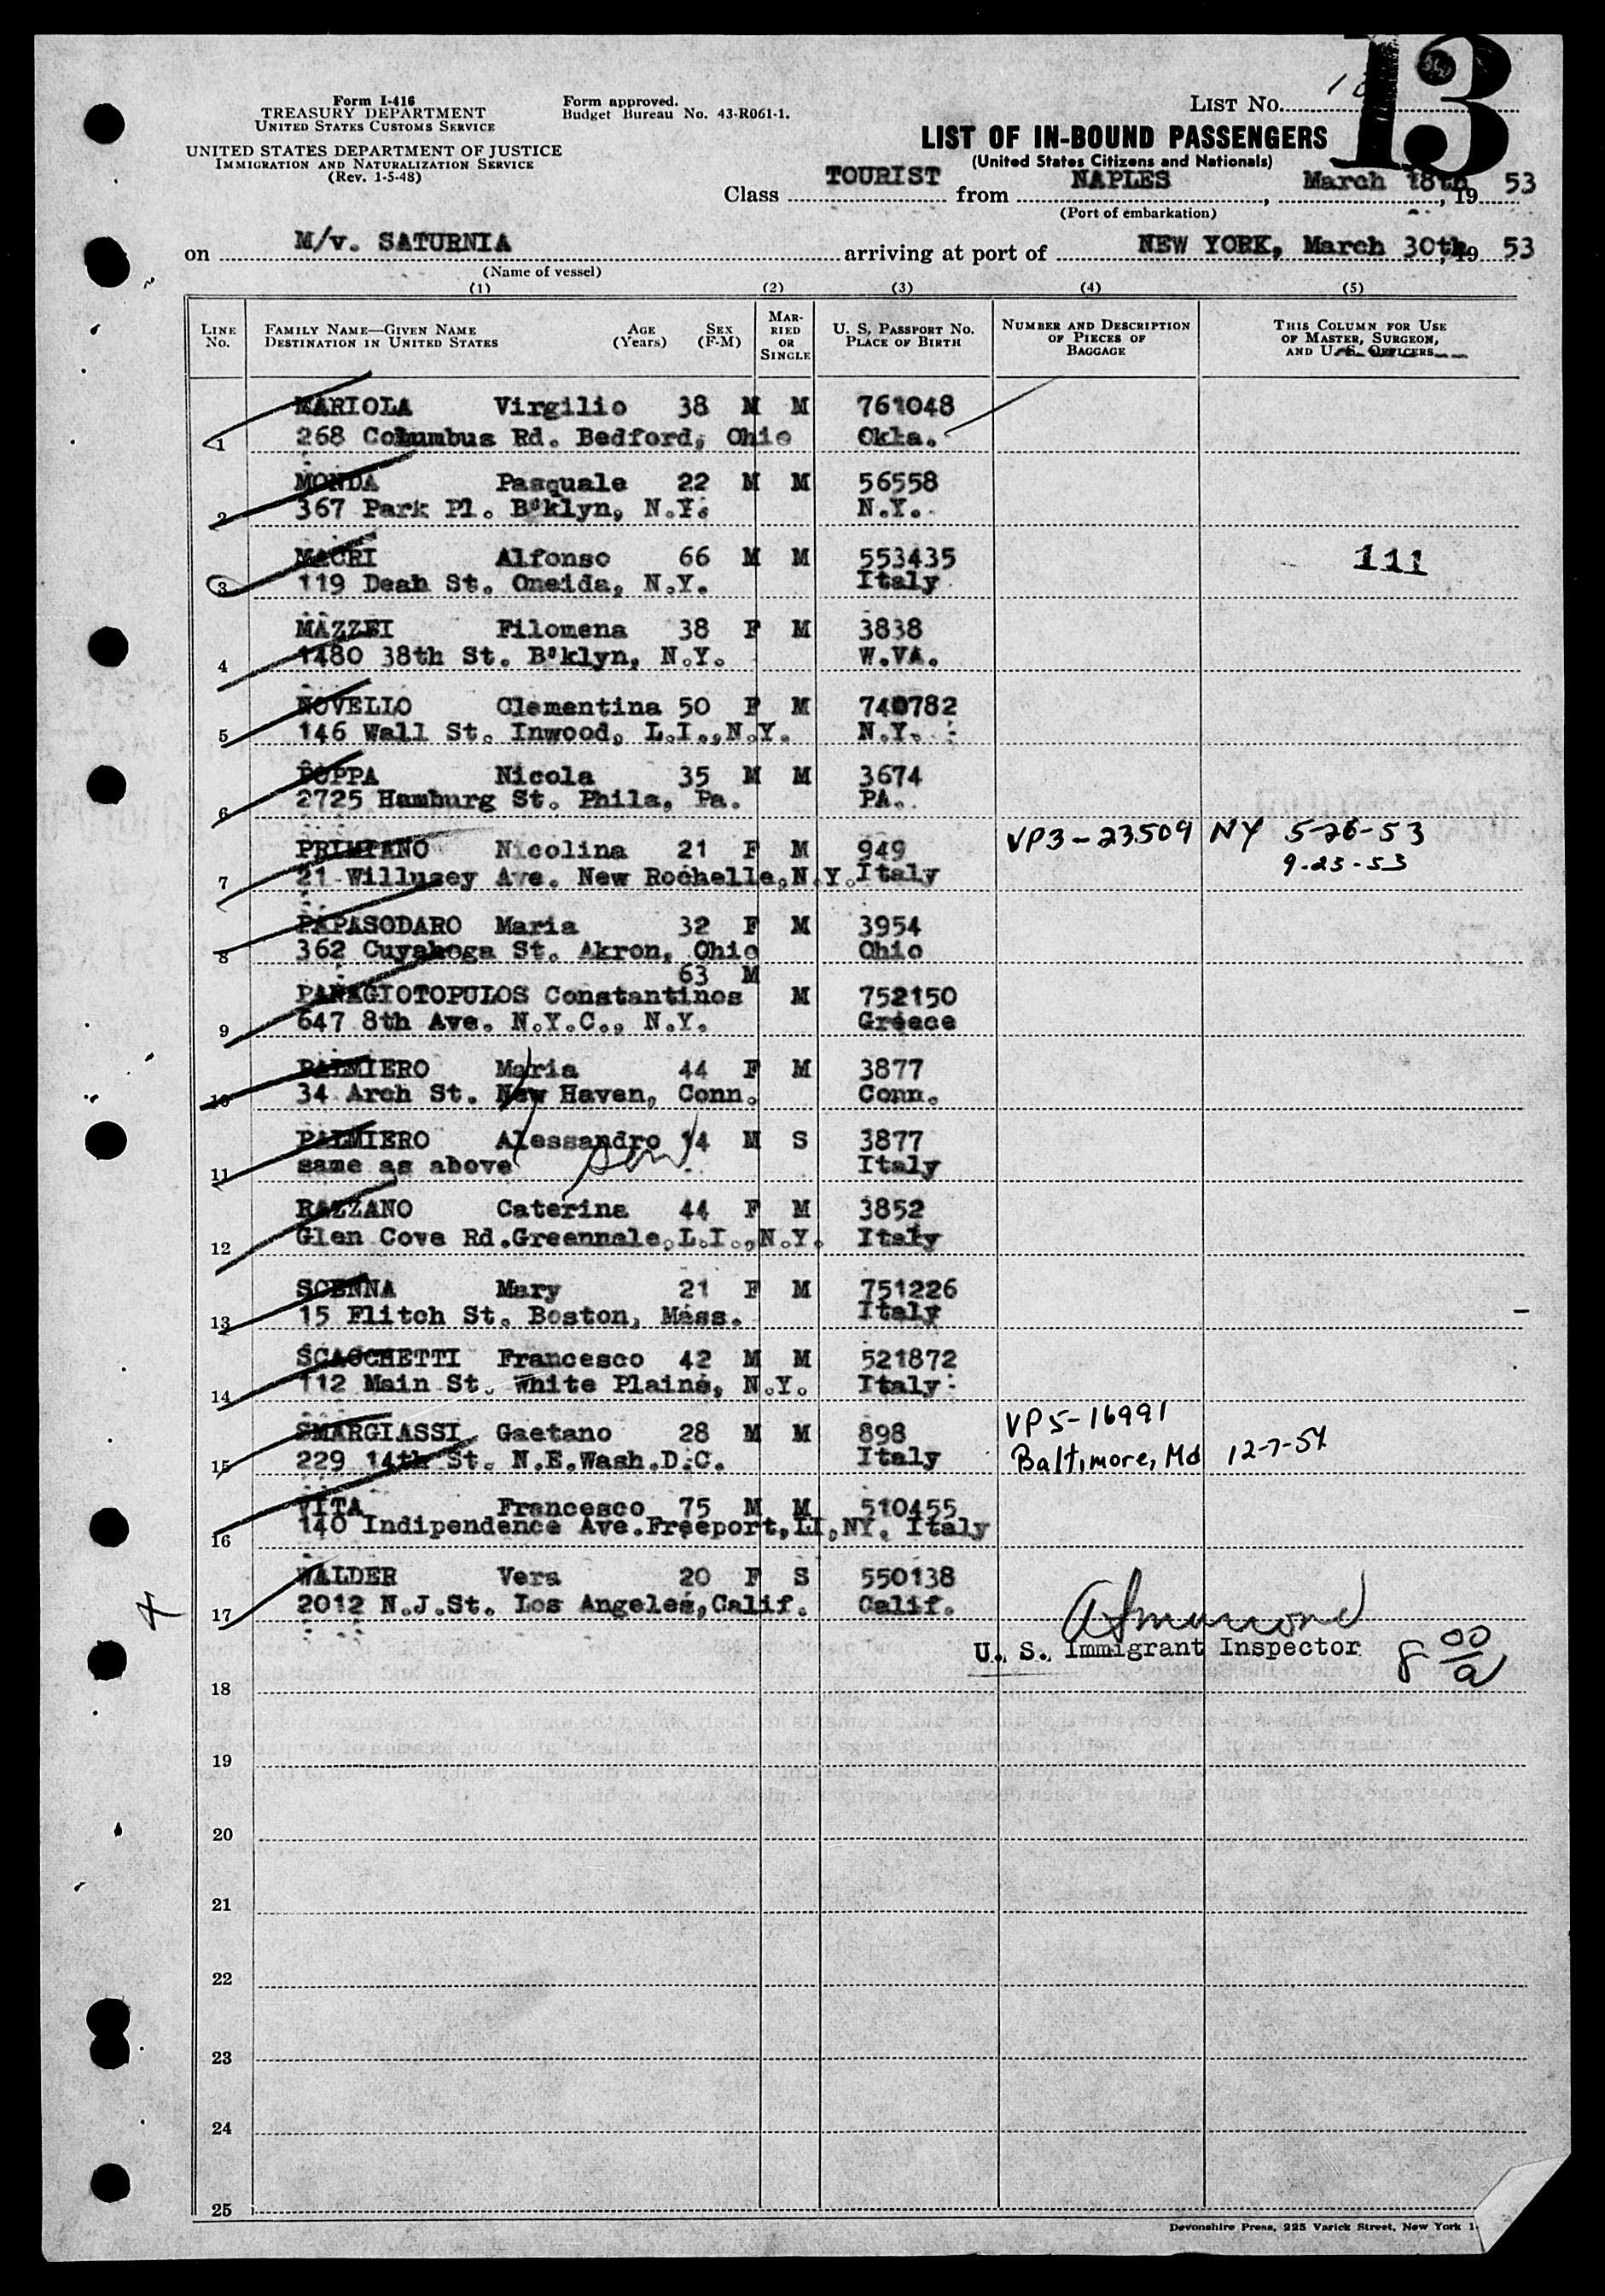 13
Form I-416
TREASURY DEPARTMENT
UNITED STATES CUSTOMS SERVICE
UNITED STATES DEPARTMENT OF JUSTICE
IMMIGRATION AND NATURALIZATION SERVICE
(Rev. 1-5-48)
Form approved.
Budget Bureau No. 43-R061-1.
LIST No.
LIST OF IN-BOUND PASSENGERS
(United States Citizens and Nationals)
Class TOURIST from NAPLES, March 18th, 19 53
(Port of embarkation)
on M/v. SATURNIA arriving at port of NEW YORK, March 30th, 19 53
(Name of vessel)
(1) (2) (3) (4) (5)
LINE No. FAMILY NAME—GIVEN NAME DESTINATION IN UNITED STATES AGE (Years) SEX (F-M) MARRIED OR SINGLE U. S. PASSPORT NO. PLACE OF BIRTH NUMBER AND DESCRIPTION OF PIECES OF BAGGAGE THIS COLUMN FOR USE OF MASTER, SURGEON, AND U. S. OFFICERS
MARIOLA Virgilio 38 M M 761048
1 268 Columbus Rd. Bedford, Ohio Okla.
MONDA Pasquale 22 M M 56558
2 367 Park Pl. B'klyn, N.Y. N.Y.
MACRI Alfonso 66 M M 553435 111
3 119 Dean St. Oneida, N.Y. Italy
MAZZEI Filomena 38 F M 3838
4 1480 38th St. B'klyn, N.Y. W.VA.
NOVELLO Clementina 50 F M 740782
5 146 Wall St. Inwood, L.I.,N.Y. N.Y.
POPPA Nicola 35 M M 3674
6 2725 Hamburg St. Phila, Pa. PA.
PRIMIANO Nicolina 21 F M 949 VP3-23509 NY 5-26-53
7 21 Willusey Ave. New Rochelle,N.Y. Italy 9-23-53
PAPASODARO Maria 32 F M 3954
8 362 Cuyahoga St. Akron, Ohio Ohio
63 M
PANAGIOTOPULOS Constantinos M 752150
9 647 8th Ave. N.Y.C., N.Y. Greece
PALMIERO Maria 44 F M 3877
10 34 Arch St. New Haven, Conn. Conn.
PALMIERO Alessandro 14 M S 3877
11 same as above son Italy
RAZZANO Caterina 44 F M 3852
12 Glen Cove Rd.Greennale,L.I.,N.Y. Italy
SCENNA Mary 21 F M 751226
13 15 Flitch St. Boston, Mass. Italy
SCACCHETTI Francesco 42 M M 521872
14 112 Main St. White Plains, N.Y. Italy
SMARGIASSI Gaetano 28 M M 898 VP5-16991
15 229 14th St. N.E.Wash.D.C. Italy Baltimore, Md 12-7-54
VITA Francesco 75 M M 510455
16 140 Indipendence Ave.Freeport,LI,NY. Italy
WALDER Vera 20 F S 550138
17 2012 N.J.St. Los Angeles,Calif. Calif.
U. S. Immigrant Inspector 8 00/a
18
19
20
21
22
23
24
25
Devonshire Press, 225 Varick Street, New York 1